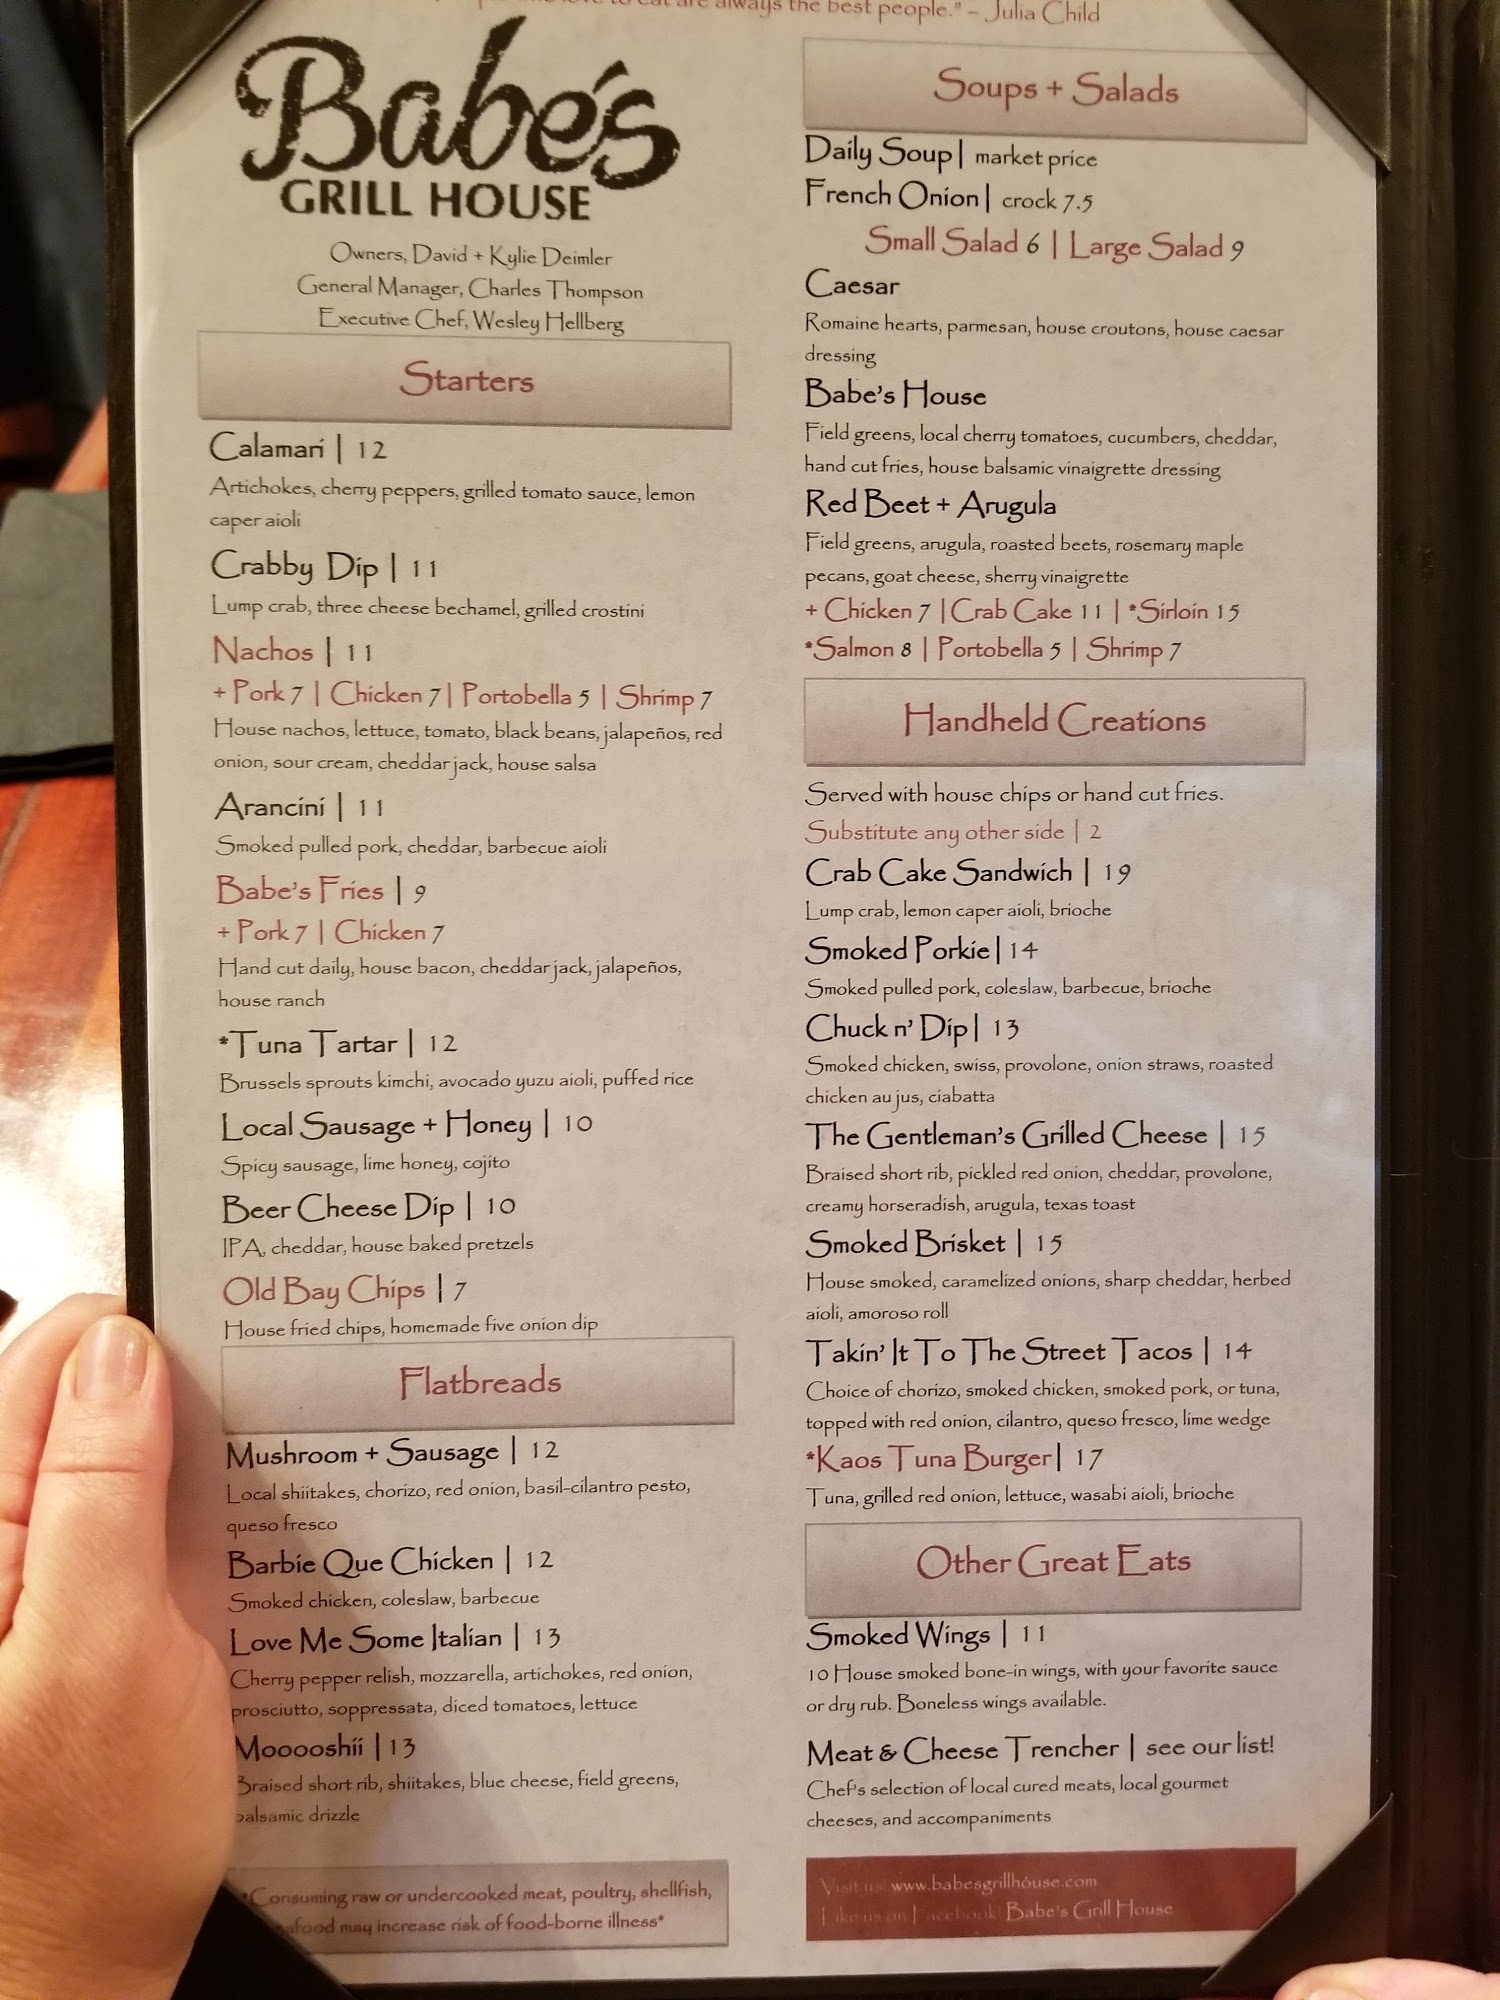 love to eat are always the best people." – Julia Child
Babe's
GRILL HOUSE
Owners, David + Kylie Deimler
General Manager, Charles Thompson
Executive Chef, Wesley Hellberg
Starters
Calamari | 12
Artichokes, cherry peppers, grilled tomato sauce, lemon
caper aioli
Crabby Dip | 11
Lump crab, three cheese bechamel, grilled crostini
Nachos | 11
+ Pork 7 | Chicken 7 | Portobella 5 | Shrimp 7
House nachos, lettuce, tomato, black beans, jalapeños, red
onion, sour cream, cheddar jack, house salsa
Arancini | 11
Smoked pulled pork, cheddar, barbecue aioli
Babe's Fries | 9
+ Pork 7 | Chicken 7
Hand cut daily, house bacon, cheddar jack, jalapeños,
house ranch
*Tuna Tartar | 12
Brussels sprouts kimchi, avocado yuzu aioli, puffed rice
Local Sausage + Honey | 10
Spicy sausage, lime honey, cojito
Beer Cheese Dip | 10
IPA, cheddar, house baked pretzels
Old Bay Chips | 7
House fried chips, homemade five onion dip
Flatbreads
Mushroom + Sausage | 12
Local shiitakes, chorizo, red onion, basil-cilantro pesto,
queso fresco
Barbie Que Chicken | 12
Smoked chicken, coleslaw, barbecue
Love Me Some Italian | 13
Cherry pepper relish, mozzarella, artichokes, red onion,
prosciutto, soppressata, diced tomatoes, lettuce
Mooooshii | 13
Braised short rib, shiitakes, blue cheese, field greens,
balsamic drizzle
*Consuming raw or undercooked meat, poultry, shellfish,
seafood may increase risk of food-borne illness*
Soups + Salads
Daily Soup | market price
French Onion | crock 7.5
Small Salad 6 | Large Salad 9
Caesar
Romaine hearts, parmesan, house croutons, house caesar
dressing
Babe's House
Field greens, local cherry tomatoes, cucumbers, cheddar,
hand cut fries, house balsamic vinaigrette dressing
Red Beet + Arugula
Field greens, arugula, roasted beets, rosemary maple
pecans, goat cheese, sherry vinaigrette
+ Chicken 7 | Crab Cake 11 | *Sirloin 15
*Salmon 8 | Portobella 5 | Shrimp 7
Handheld Creations
Served with house chips or hand cut fries.
Substitute any other side | 2
Crab Cake Sandwich | 19
Lump crab, lemon caper aioli, brioche
Smoked Porkie | 14
Smoked pulled pork, coleslaw, barbecue, brioche
Chuck n' Dip | 13
Smoked chicken, swiss, provolone, onion straws, roasted
chicken au jus, ciabatta
The Gentleman's Grilled Cheese | 15
Braised short rib, pickled red onion, cheddar, provolone,
creamy horseradish, arugula, texas toast
Smoked Brisket | 15
House smoked, caramelized onions, sharp cheddar, herbed
aioli, amoroso roll
Takin' It To The Street Tacos | 14
Choice of chorizo, smoked chicken, smoked pork, or tuna,
topped with red onion, cilantro, queso fresco, lime wedge
*Kaos Tuna Burger | 17
Tuna, grilled red onion, lettuce, wasabi aioli, brioche
Other Great Eats
Smoked Wings | 11
10 House smoked bone-in wings, with your favorite sauce
or dry rub. Boneless wings available.
Meat & Cheese Trencher | see our list!
Chef's selection of local cured meats, local gourmet
cheeses, and accompaniments
Visit us! www.babesgrillhouse.com
Like us on Facebook! Babe's Grill House